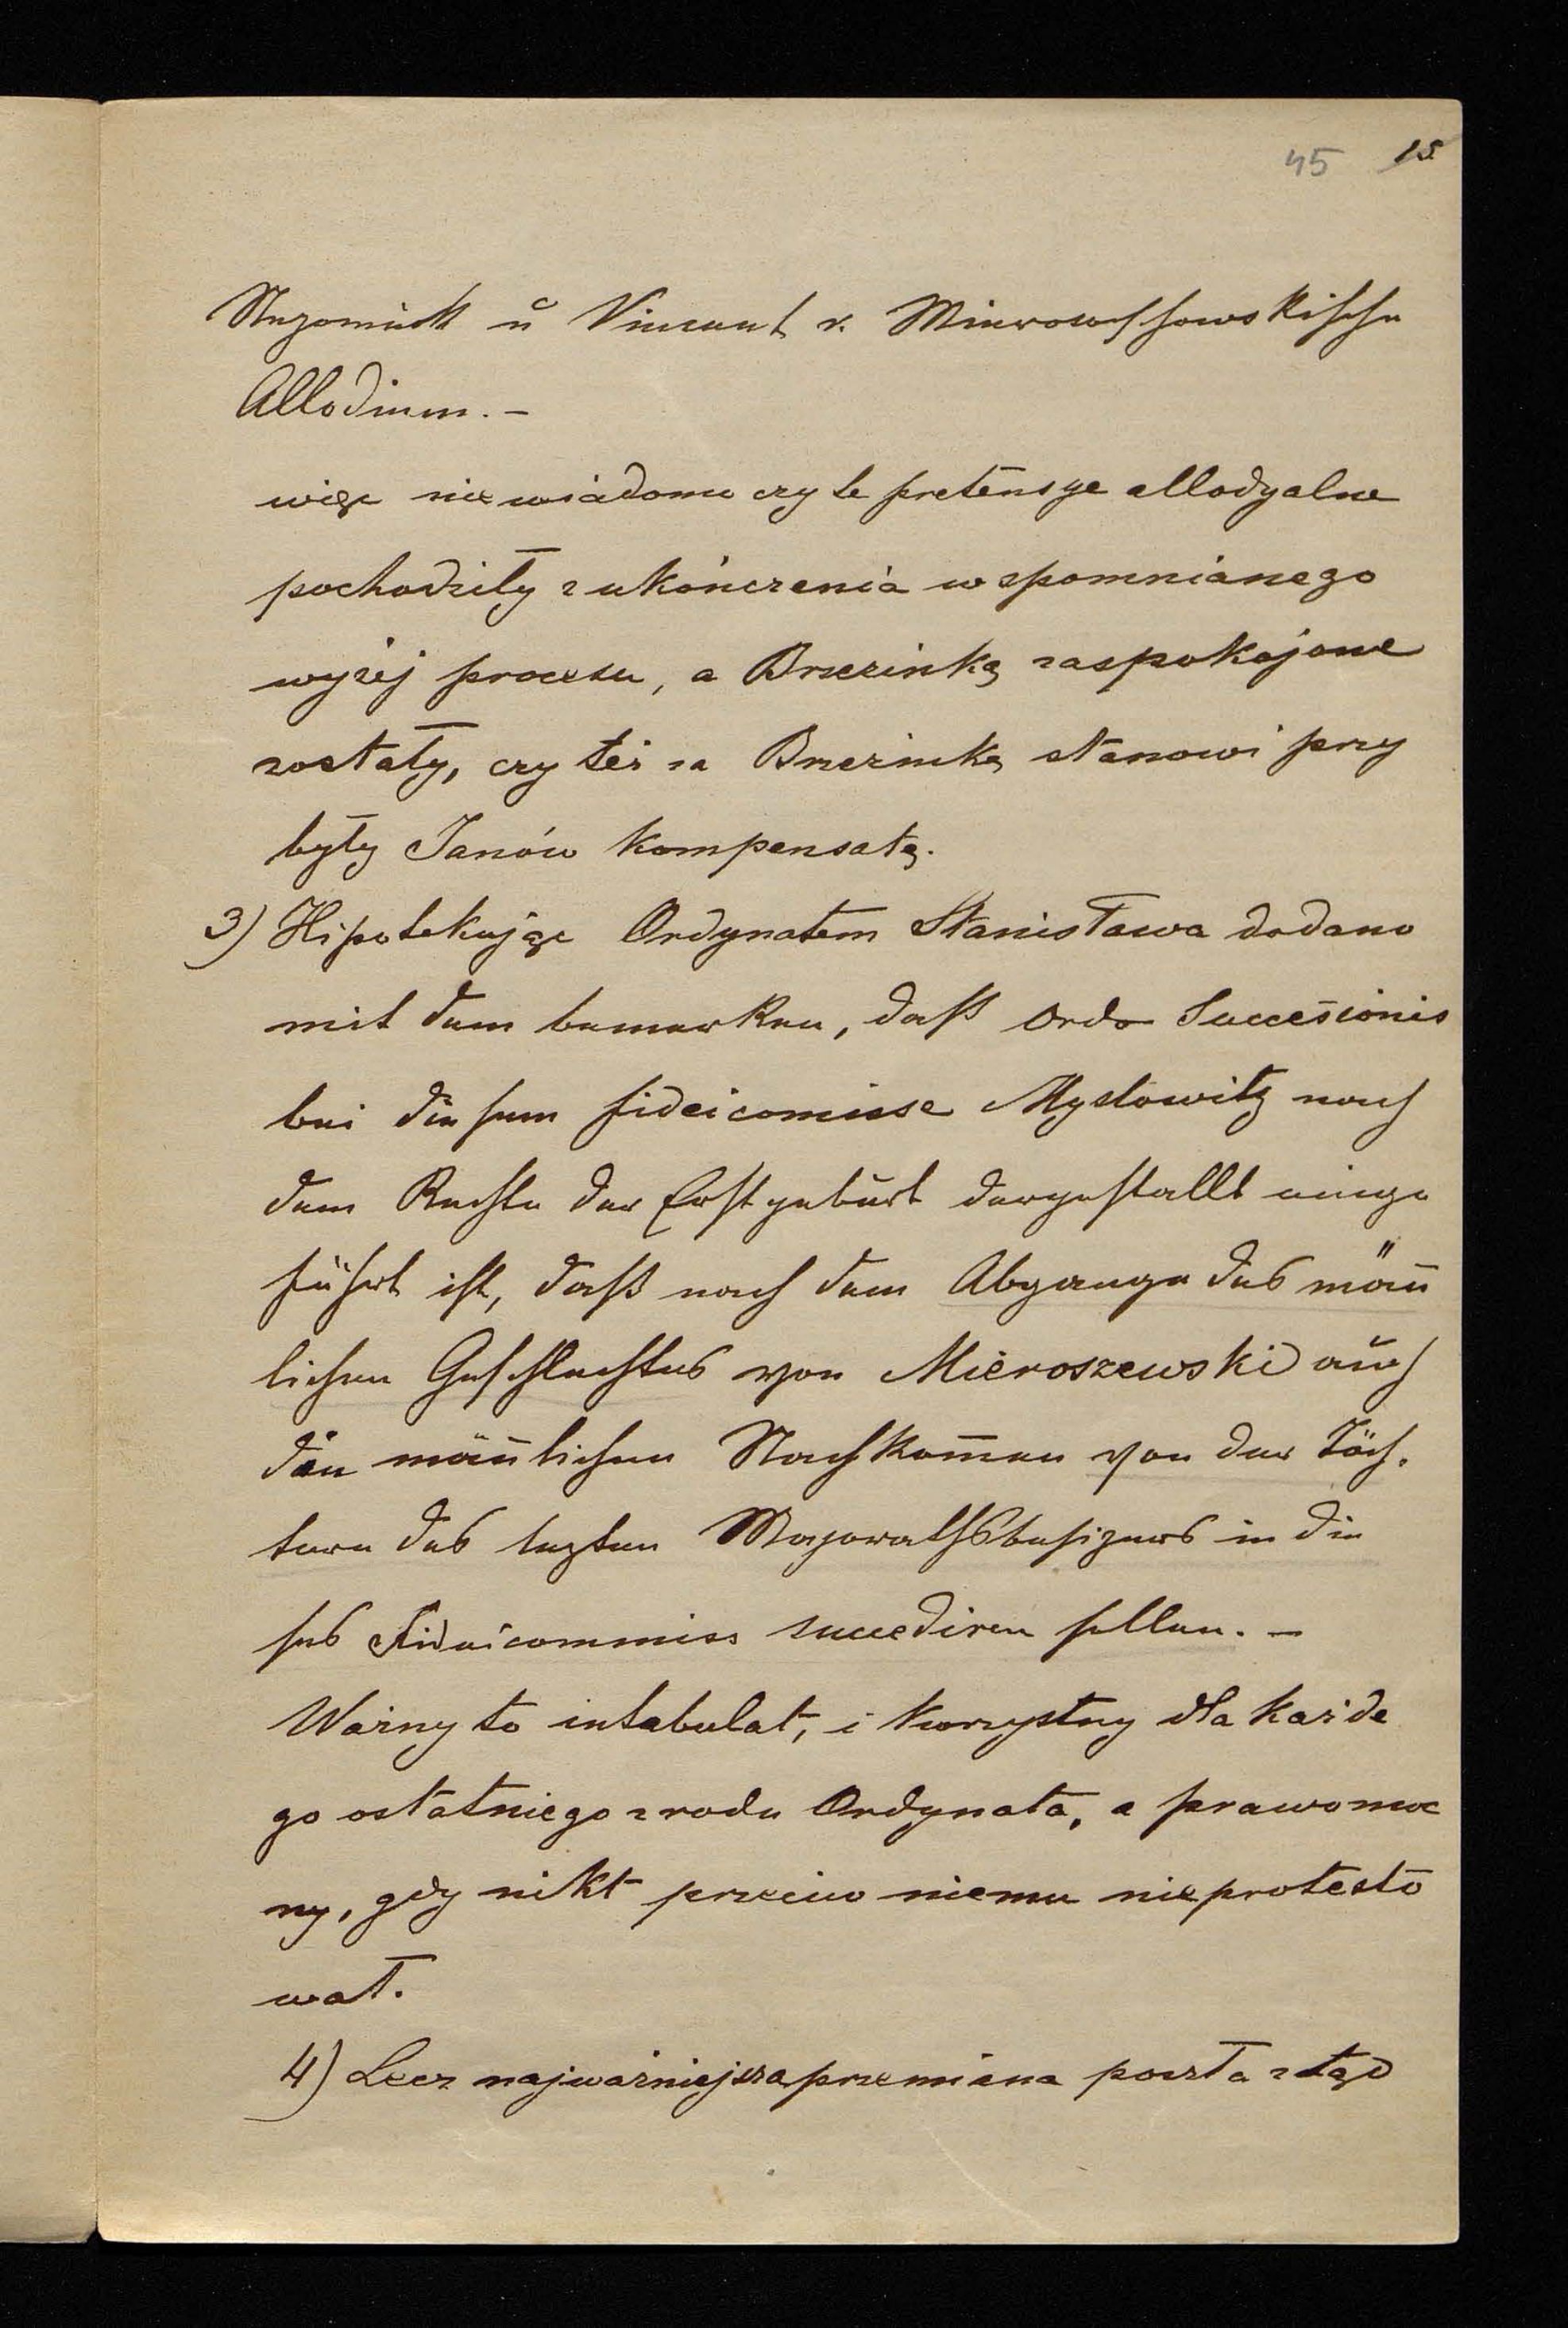 45 15.
Nepomuck u Vincent v. Mieroschowskische
Allodium. –
więc niewiadomo czy te pretensye allodyalne
pochodziły z ukończenia wspomnianego
wyżej procesu, a Brzezinką zaspokojone
zostały, czy też za Brzezinkę stanowi przy
były Janów kompensatę.
3) Hipotekując Ordynatem Stanisława dodano
mit dem bemerken, daß Ordo Succesionis
bei diesem fideicomisse Myslowitz nach
dem Rechte der Erstgeburt dergestallt einge
führt ist, daß nach dem Abgange des mäñ
lichen Geschlechtes von Mieroszewski auch
die mäñlichen Nachkom̄en von der Töch.
tern des lezten Majorathsbesizers in die
ses Fideicommiss succediren sollen. –
Ważny to intabulat, i korzystny dla każde
go ostatniego z rodu Ordynata, a prawomoc
ny, gdy nikt przeciw niemu nieprotesto
wał.
4) Lecz najważniejsza przemiana poszła ztąd